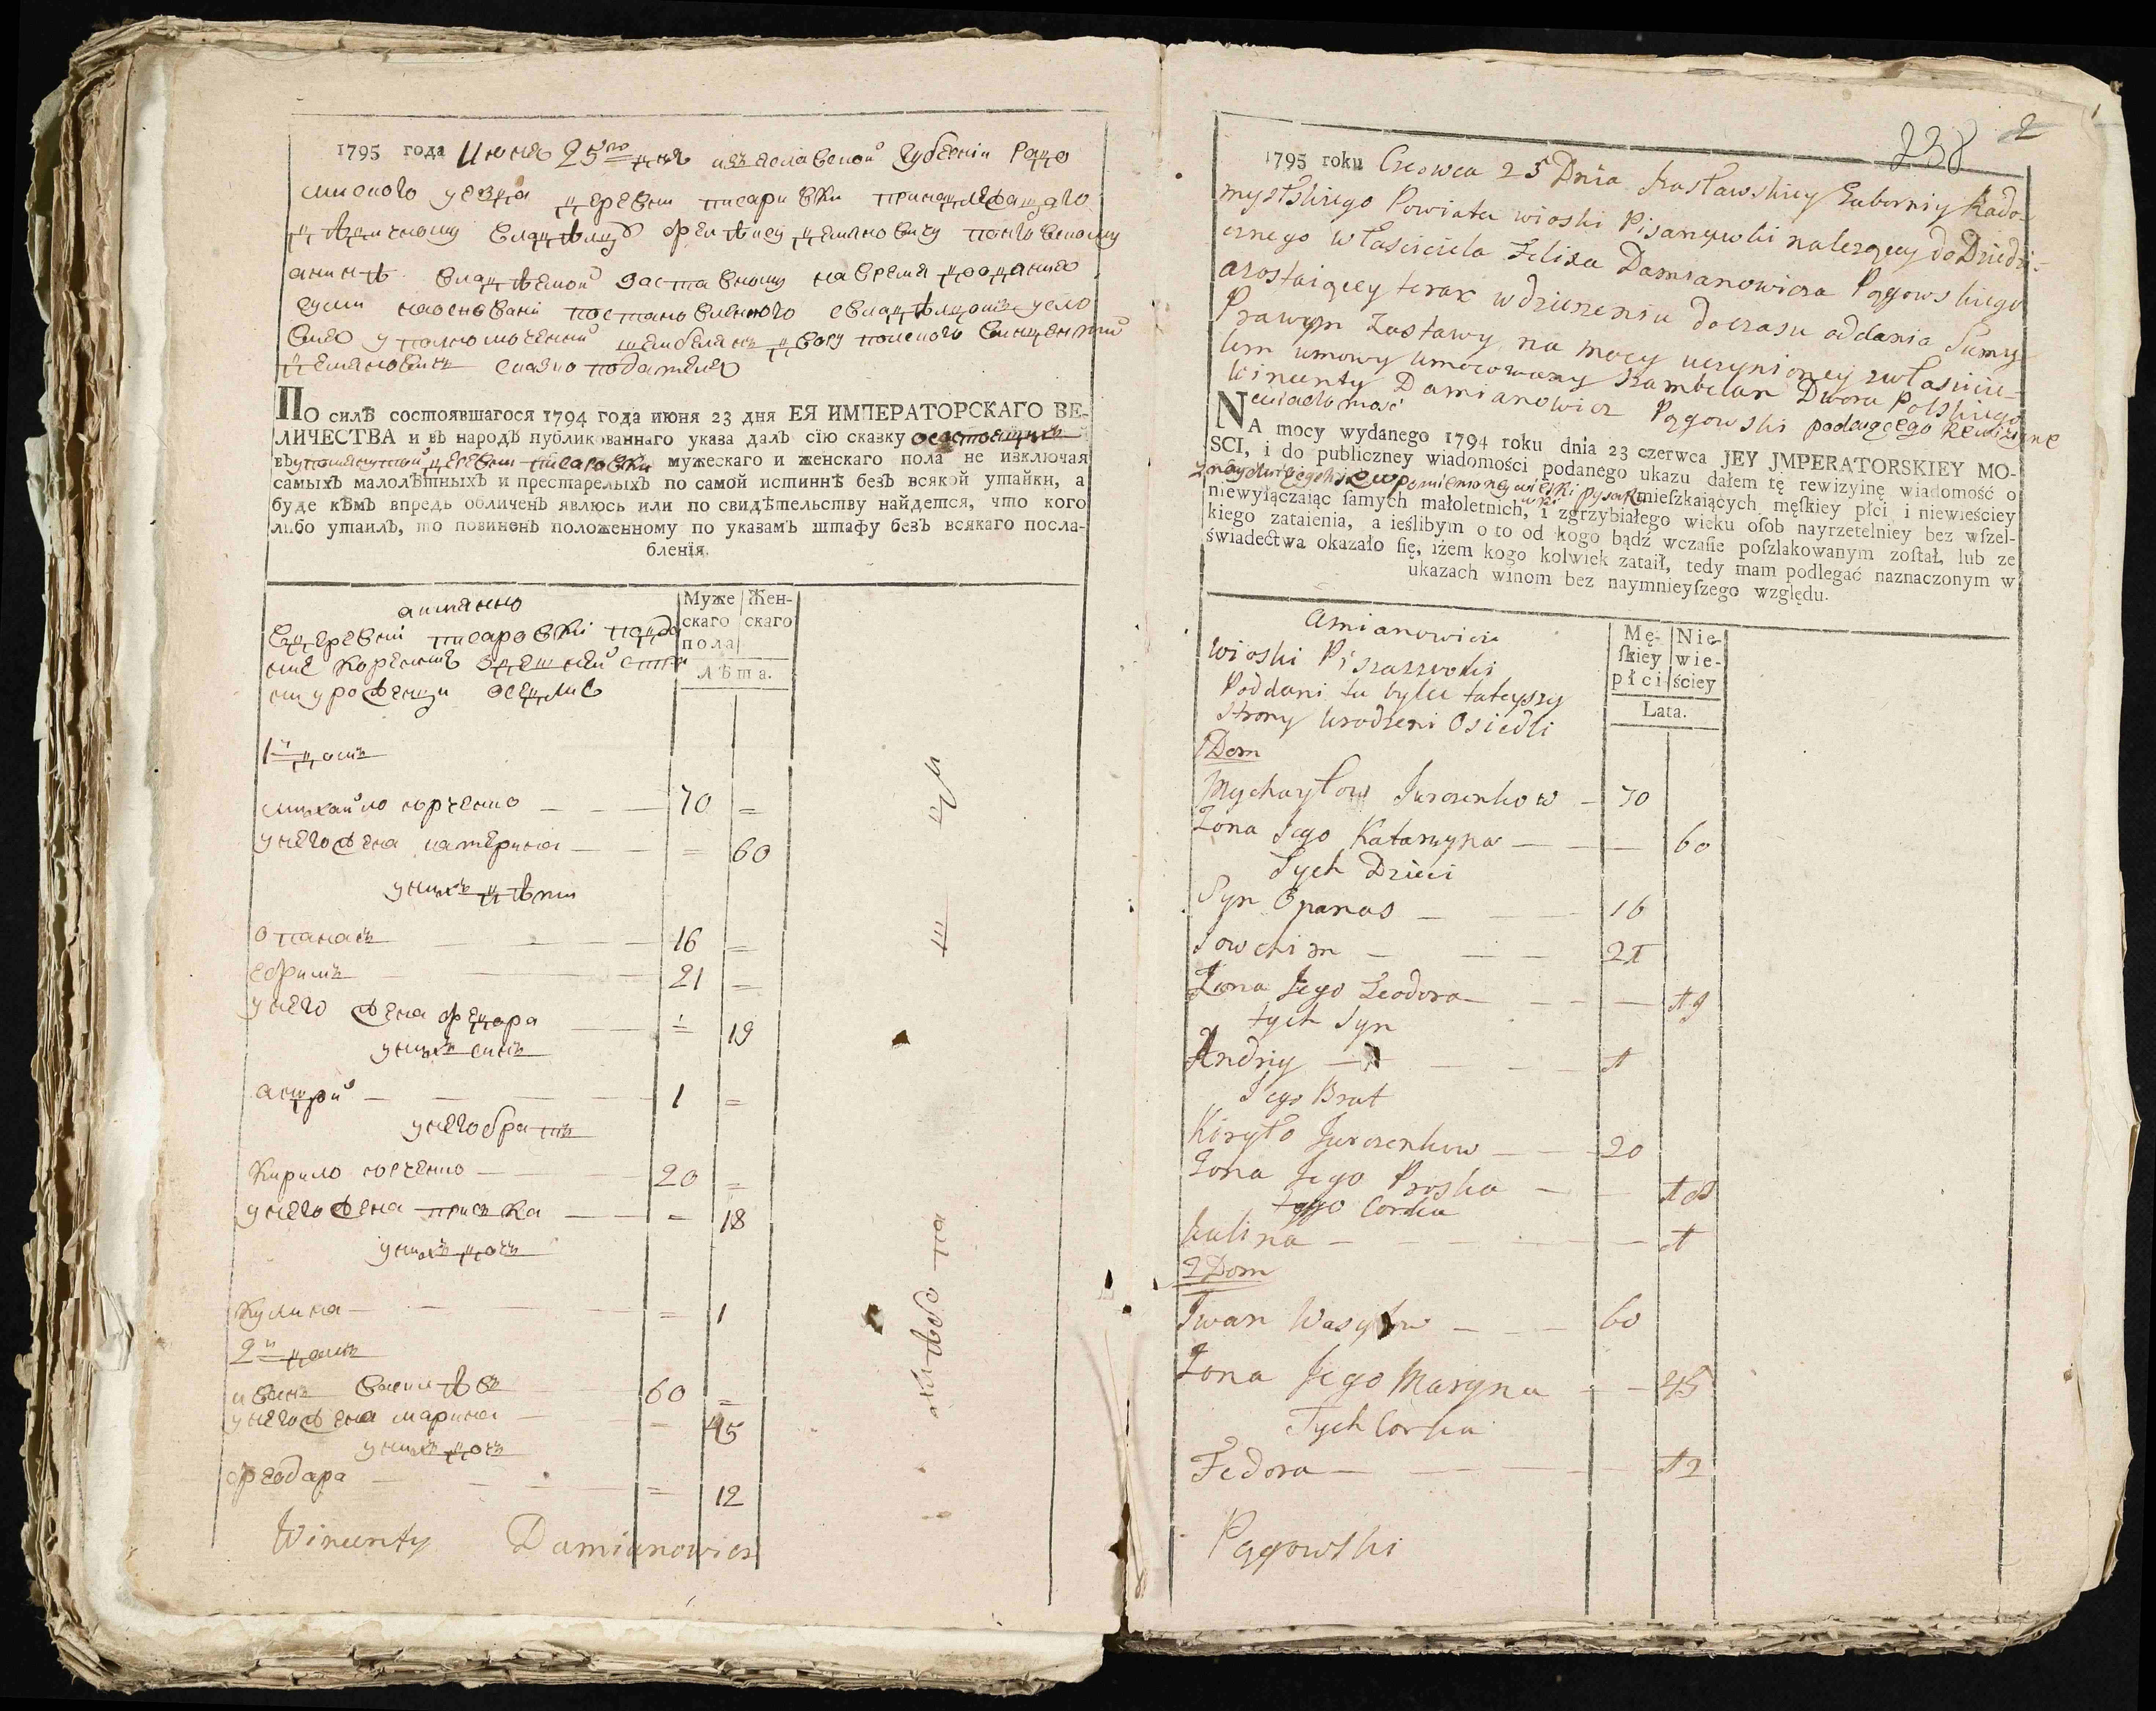 1795 года Июня 25го дня изъяславской губернiи Радо
мислского уезда деревни писаривки принадлежащаго
дѣдичному владѣлцу фелѣксу демяновичу понговскому
анинѣ владѣемой заставному на время отдания
суми наоснованi постановленного свладѣлцомъ усло
вия уполномоченний шамбелянъ двору полского винцентий
демяновичъ сказко подателъ
По силѣ состоявшагося 1794 года июня 23 дня ЕЯ ИМПЕРАТОРСКАГО ВЕ-
ЛИЧЕСТВА и въ народѣ публикованнаго указа далъ сiю сказку осостоящихъ
въупомянутой деревни писаровки мужескаго и женскаго пола не изключая
самыхъ малолѣтныхъ и престарелыхъ по самой истиннѣ безъ всякой утайки, а
буде кѣмъ впредь обличенъ явлюсь или по свидѣтельству найдется, что кого
либо утаилъ, то повиненъ положенному по указамъ штафу безъ всякаго посла-
бленiя.
аимянно
Вдеревнi писаровкi подда
ние коренние здешней сто
ни уроженци оседлие
Муже
скаго
пола
Жен-
скаго
Лѣта.
1й домъ
михайло юрченко 70 =
унего жена катерина = 60
унихъ дѣти
опанасъ 16 =
ефимъ 21 =
унего жена федора = 19
унихъ синъ
андрий 1 =
унего братъ
Кирило юрченко 20 =
унего жена приська = 18
унихъ дочъ
Кулина = 1
2й домъ
иванъ василѣвъ 60 =
унего жена марина = 45
унихъ дочъ
феодара = 12
Wincenty Damianowicz
238 2
1795 roku Czerwca 25 Dnia Izasławskiey Guberniy Rado-
myslskiego Powiatu wioski Pisarzywki nalezącey do Dziedzi-
cznego własciciela Felixa Damianowicza Pągowskiego
azostaiącey teraz w dzierzeniu do czasu oddania Summy
Prawem Zastawy na mocy uczynioney zwłascicie-
lem umowy umocowany szambelan Dworu Polskiego
Wincenty Damianowicz Pągowski podaiącego Rewizyine
wiadomosć
NA mocy wydanego 1794 roku dnia 23 czerwca JEY JMPERATORSKIEY MO-
SCI, i do publiczney wiadomości podanego ukazu dałem tę rewizyinę wiadomość o
znayduiącychsię w pomienioney wioski pysarzowki mieſzkaiących męſkiey płci i niewieściey
niewyłączaiąc ſamych małoletnich, i zgrzybiałego wieku oſob nayrzetelniey bez wſzel-
kiego zataienia, a ieślibym o to od kogo bądź wczaſie poſzlakowanym zoſtał, lub ze
świadectwa okazało ſię, iżem kogo kolwiek zataił, tedy mam podlegać naznaczonym w
ukazach winom bez naymnieyſzego względu.
Amianowicie
Wioski Piszarzwoki
Poddani tu bylce tuteyszy
strony Urodzeni Osiedli
Mę-
ſkiey
płci
Nie-
wie-
ściey
Lata.
1 Dom
Mychayłow Jurczenkow 70
Zona Jego Katarzyna 60
Tych Dzieci
Syn Opanas 16
Jowchim 21
Zona Jego Teodora 19
tych Syn
Andriy 1
Jego Brat
Kiryło Jurczenkow 20
Zona Jego Proska 18
tego Corka
Kulina 1
2 Dom
Iwan Wasylow 60
Zona Jego Maryna 45
Tych Corka
Fedora 12
Pągowski